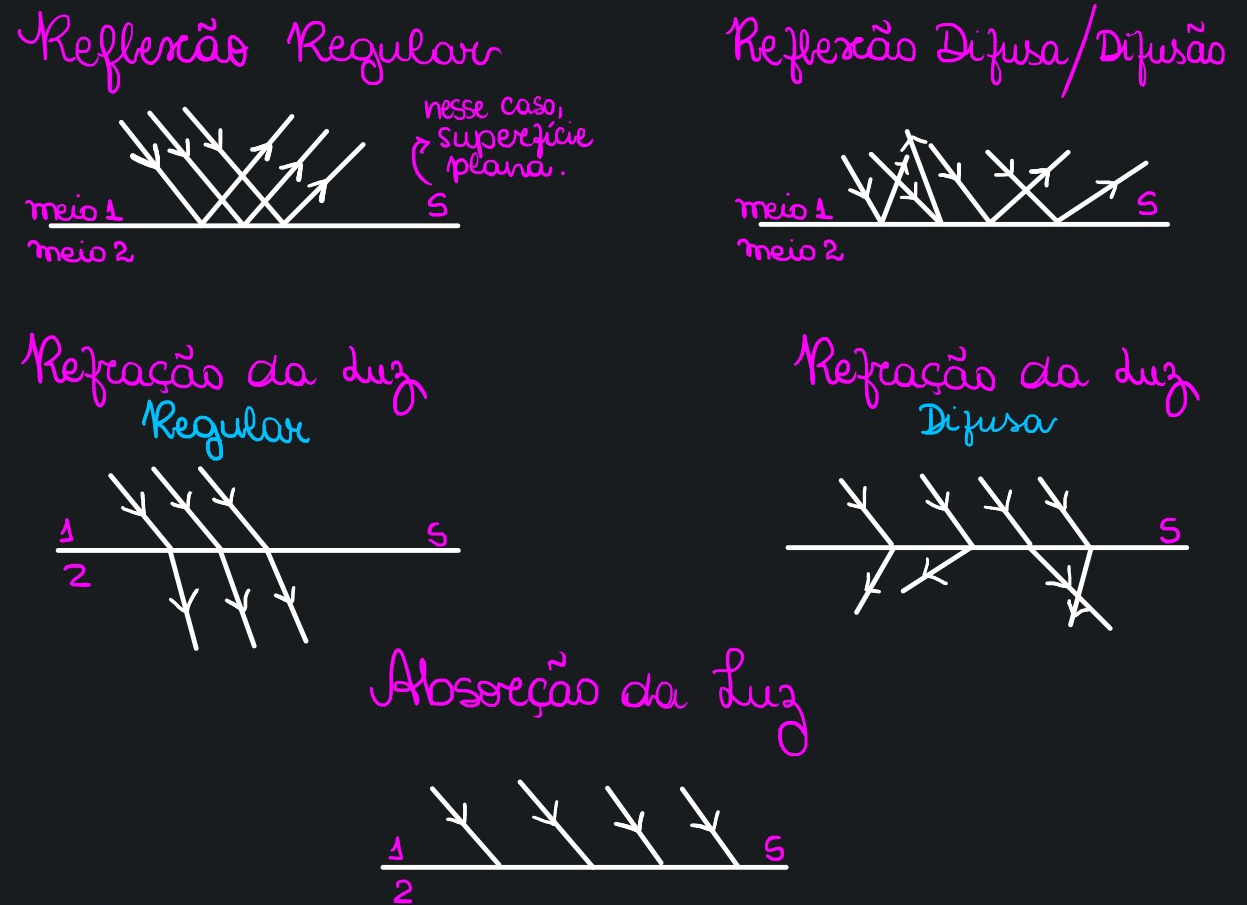 Reflexão Regular
nesse caso,
superfície
plana.
meio 1
S
meio 2
Reflexão Difusa/Difusão
meio 1
S
meio 2
Refração da Luz
Regular
1
S
2
Refração da Luz
Difusa
S
Absorção da Luz
1
S
2